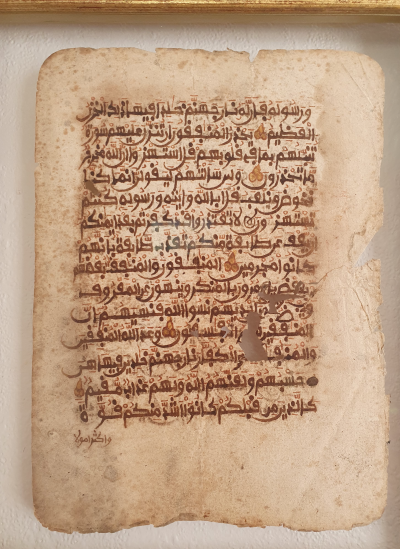 ورسوله فإن له نار جهنم خلدا فيها ذلك الخزي
العظيم يحذر المنفقون أن تنزل عليهم سورة
تنبئهم بما في قلوبهم قل استهزءوا إن الله مخرج
ما تحذرون ولئن سألتهم ليقولن إنما كنا
نخوض ونلعب قل أبالله وءايته ورسوله كنتم
تستهزءون لا تعتذروا قد كفرتم بعد إيمنكم
إن يعف عن طائفة منكم تعذب طائفة بأنهم
كانوا مجرمين المنفقون والمنفقت بعضهم
من بعض يأمرون بالمنكر وينهون عن المعروف
أيديهم نسوا الله فنسيهم إن
المنفقين هم الفسقون وعد الله المنفقين
والمنفقت والكفار نار جهنم خلدين فيها هي
حسبهم ولعنهم الله ولهم عذاب مقيم
كالذين من قبلكم كانوا أشد منكم قوة
وأكثر أمولا